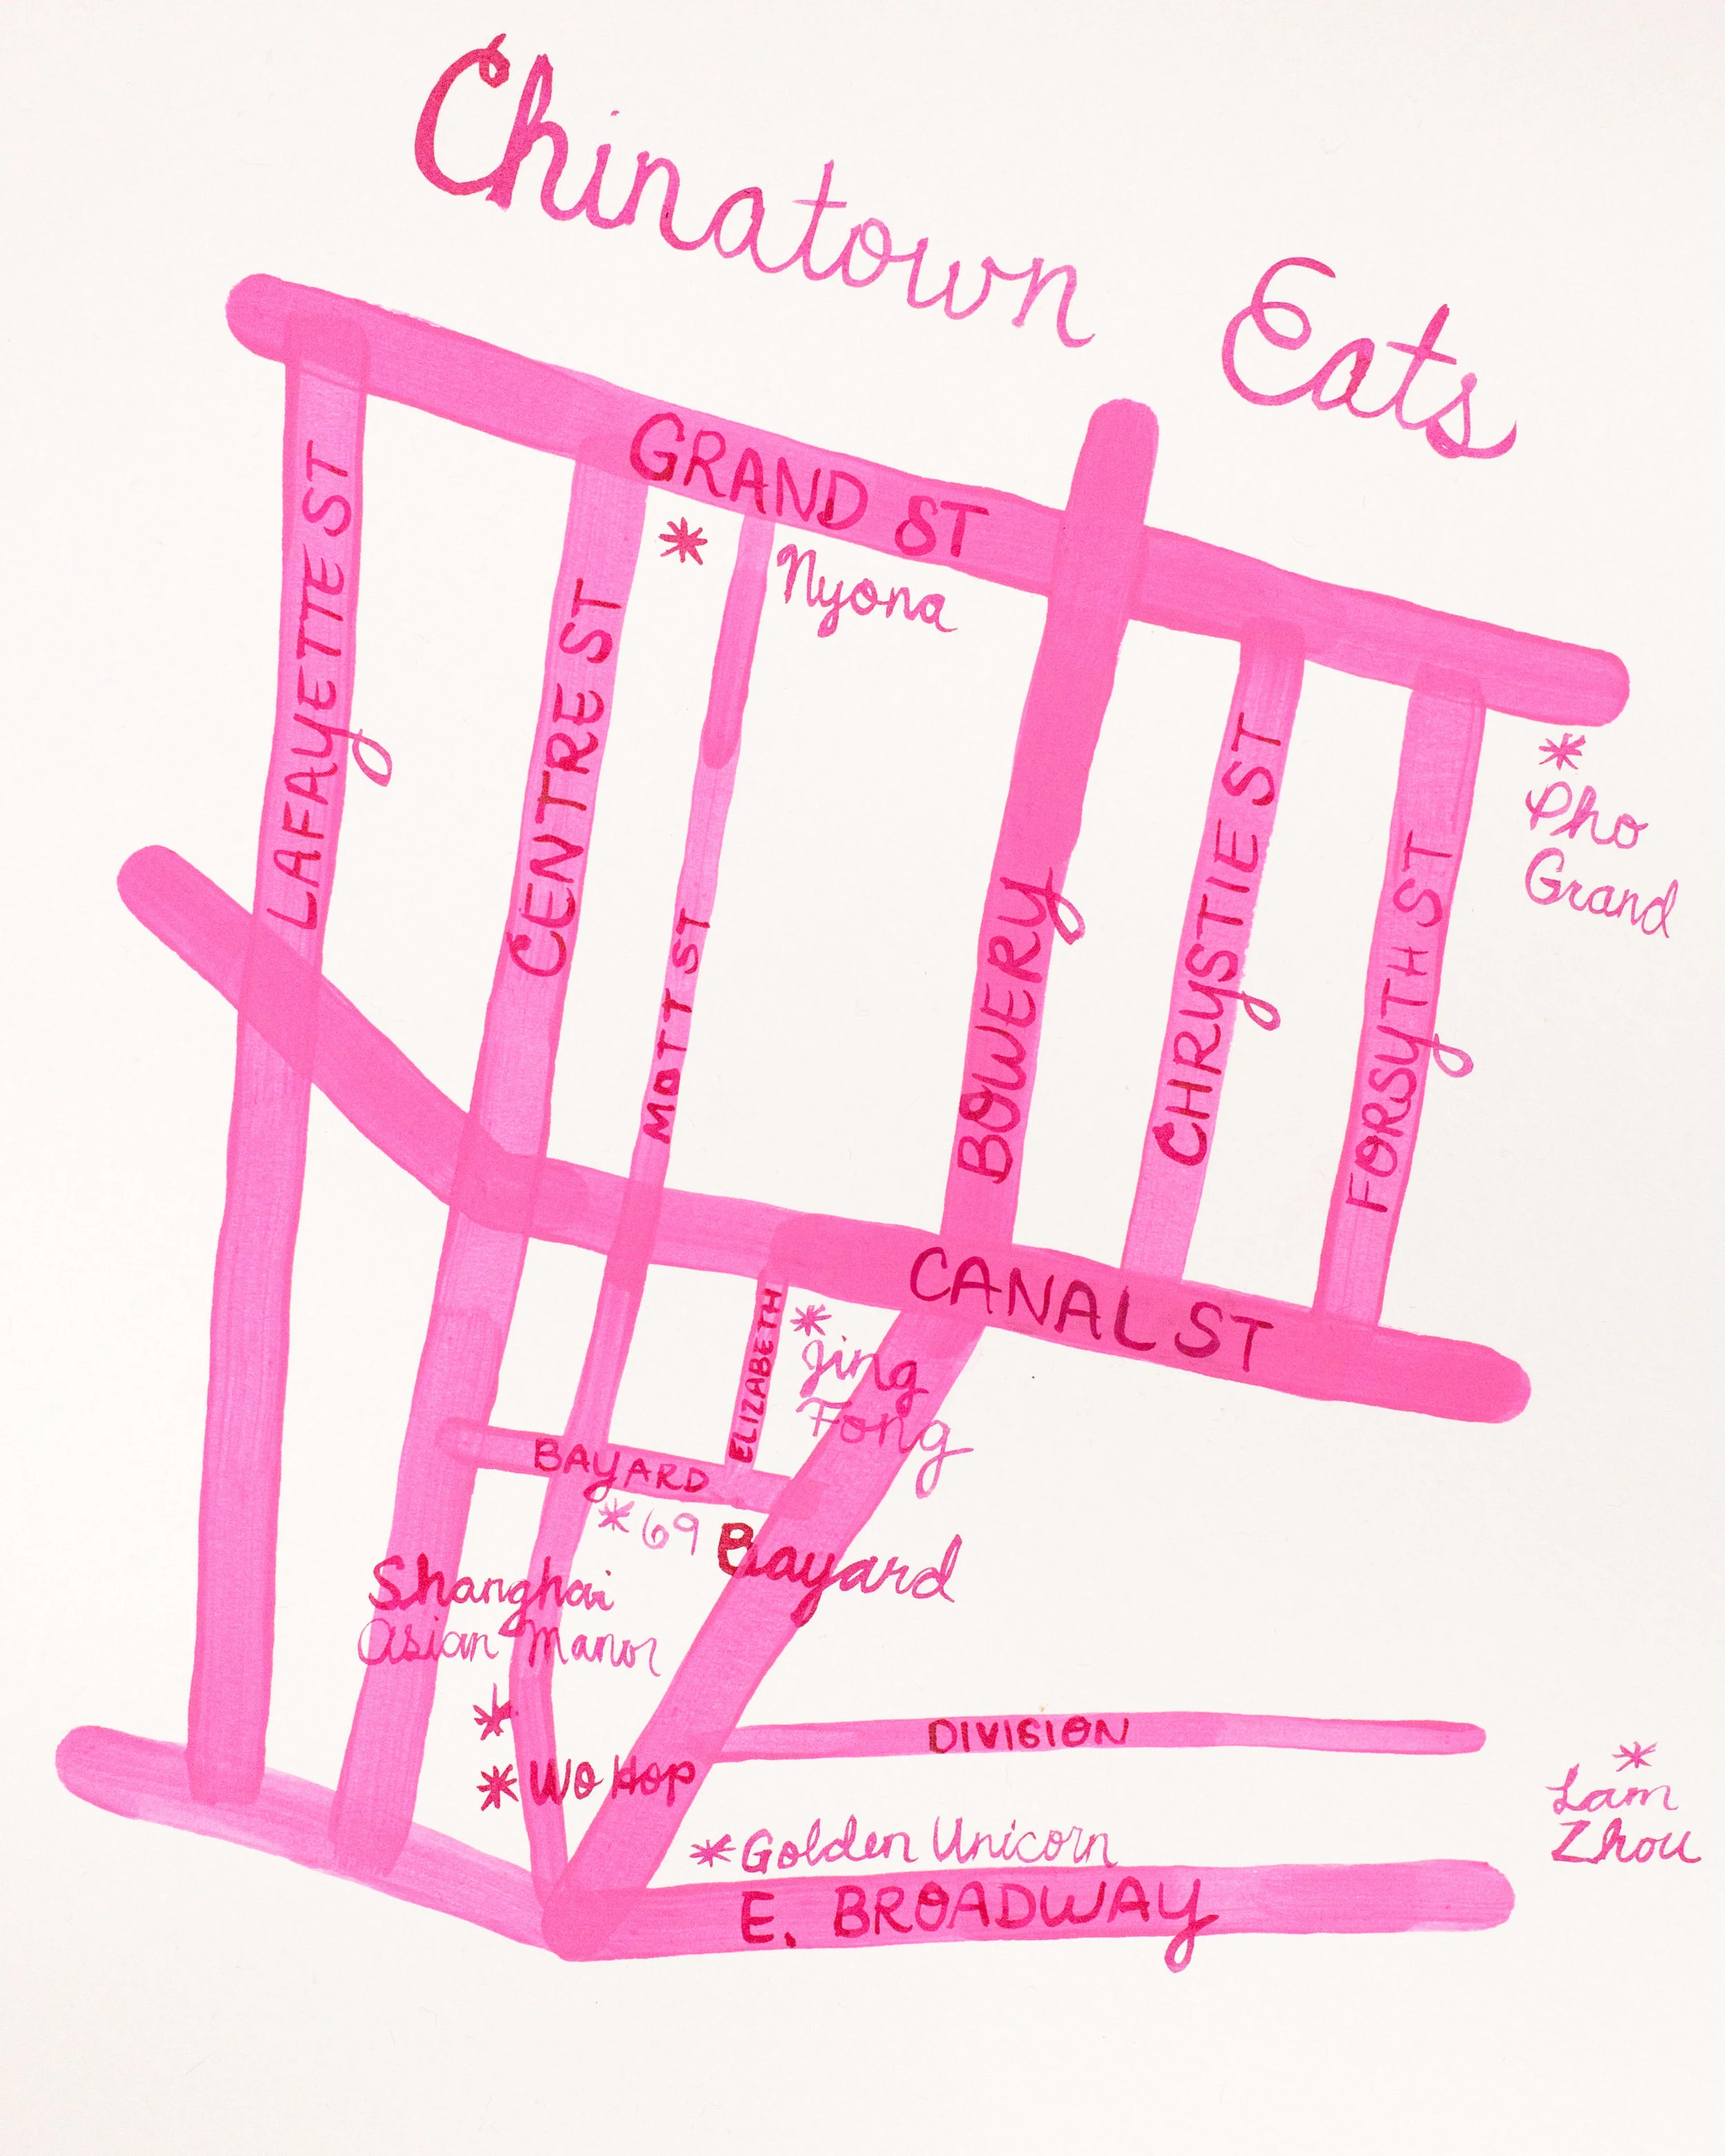 Chinatown Eats
GRAND ST
LAFAYETTE ST
CENTRE ST
MOTT ST
BOWERY
CHRYSTIE ST
FORSYTH ST
* Nyona
*
Pho
Grand
CANAL ST
ELIZABETH
*
Jing
Fong
BAYARD
* 69 Bayard
Shanghai
Asian Manor
*
* WO HOP
DIVISION
*
Lam
Zhou
* Golden Unicorn
E. BROADWAY